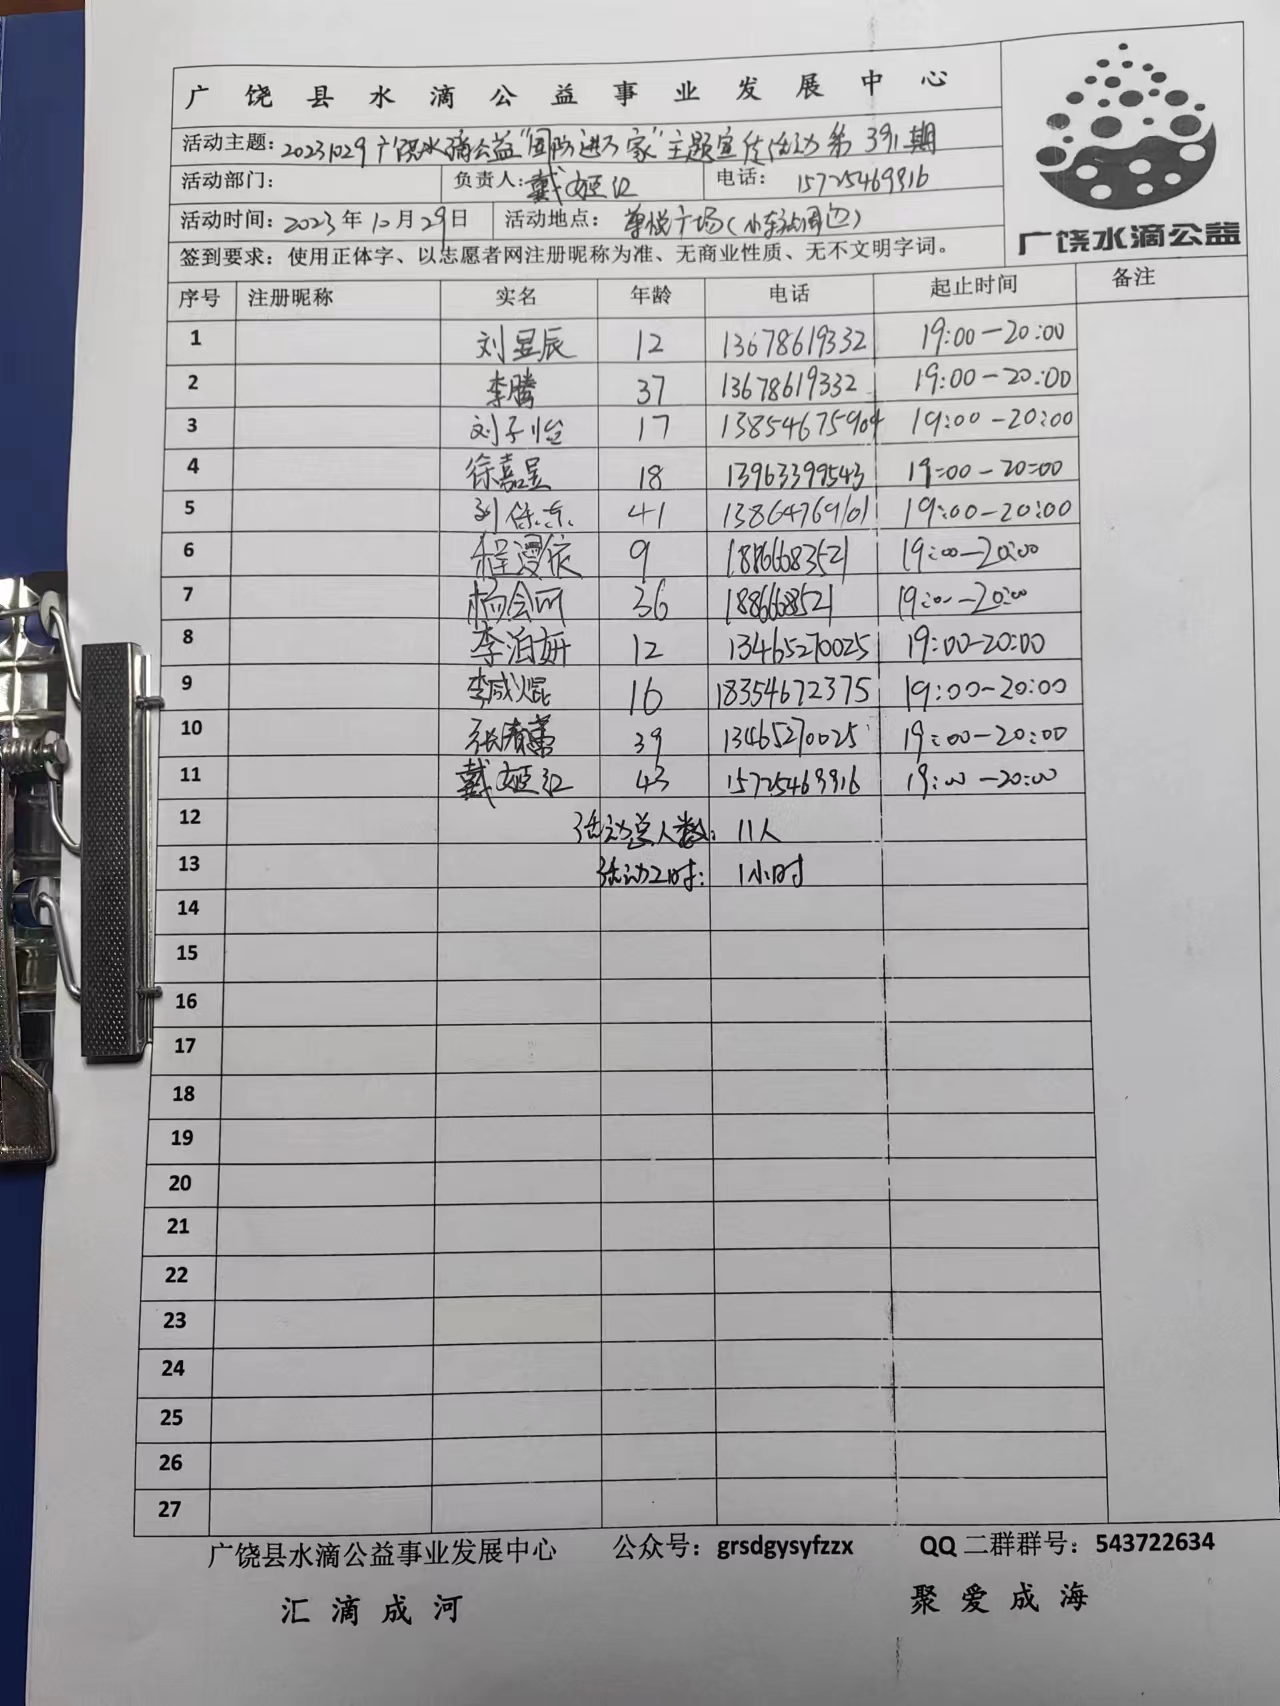 广饶县水滴公益事业发展中心
活动主题：20231029广饶水滴公益"国防进万家"主题宣传活动第391期
活动部门： 负责人：戴姬红 电话：15725469916
活动时间：2023年10月29日 活动地点：尊悦广场（小车站周边）
广饶水滴公益
签到要求：使用正体字、以志愿者网注册昵称为准、无商业性质、无不文明字词。
序号 注册昵称 实名 年龄 电话 起止时间 备注
1 刘昱辰 12 13678619332 19:00-20:00
2 李腾 37 13678619332 19:00-20:00
3 刘子怡 17 13854675904 19:00-20:00
4 徐嘉昱 18 13963399543 19:00-20:00
5 41 13864769101 19:00-20:00
6 程漫依 9 18866683521 19:00-20:00
7 杨会网 36 1886668521 19:00-20:00
8 李泊妍 12 13465270025 19:00-20:00
9 李成焜 16 18354672375 19:00-20:00
10 39 13465270025 19:00-20:00
11 戴姬红 43 15725469916 19:00-20:00
12 活动总人数：11人
13 活动工时：1小时
14
15
16
17
18
19
20
21
22
23
24
25
26
27
广饶县水滴公益事业发展中心 公众号：grsdgysyfzzx QQ二群群号：543722634
汇滴成河 聚爱成海